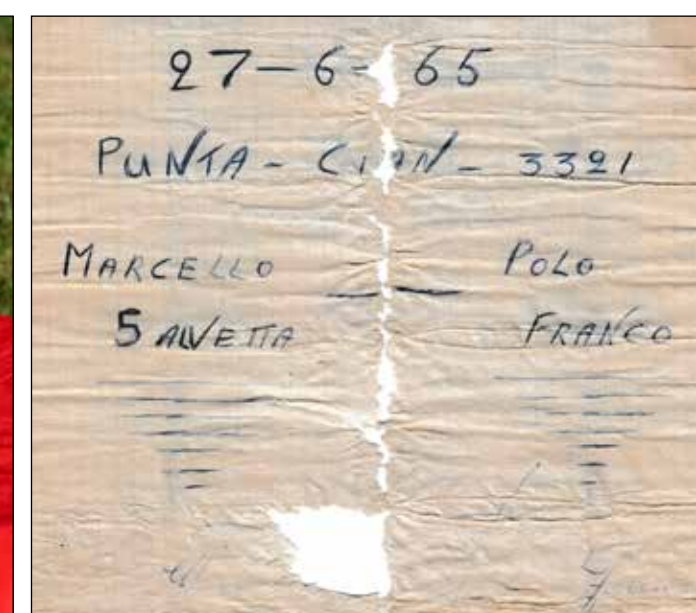 27-6-65
PUNTA - CIAN - 3321
MARCELLO — POLO
SALVETTA FRANCO